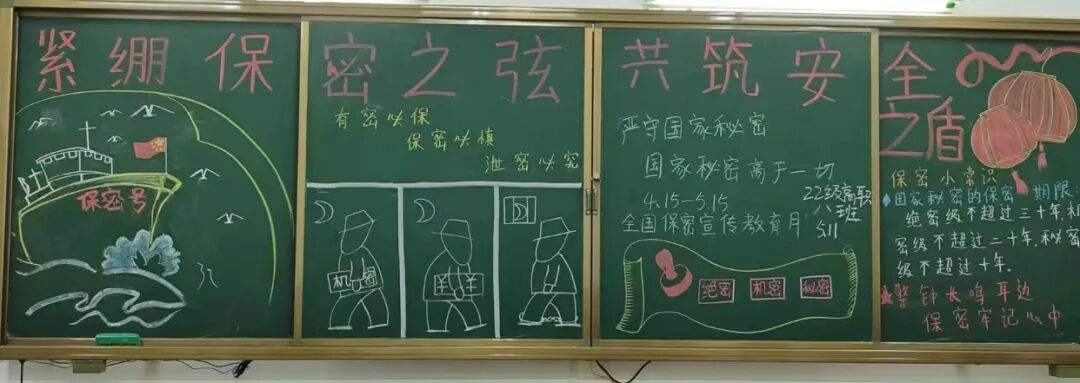 紧绷保密之弦 共筑安全之盾
保密号
有密必保
保密必慎
泄密必究
机密
羊羊
严守国家秘密
国家秘密高于一切
4.15-5.15
全国保密宣传教育月
22级高职
八班
5.11
绝密 机密 秘密
保密小常识
国家秘密的保密期限:
绝密级不超过三十年机
密级不超过二十年,秘密
级不超过十年.
警钟长鸣耳边
保密牢记心中